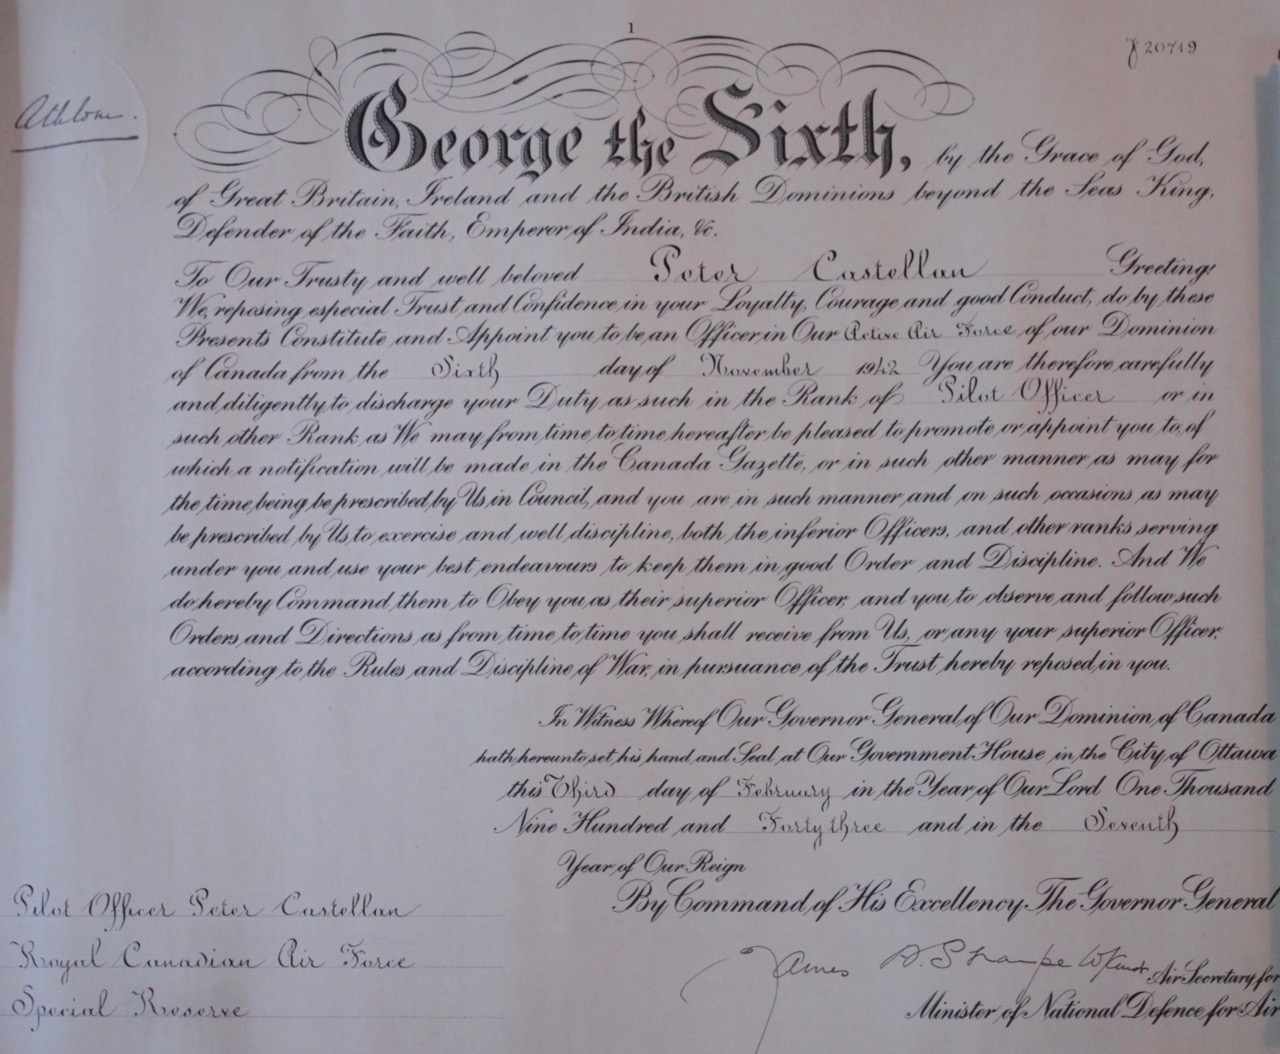 1
J 20749
Athlone.
George the Sixth, by the Grace of God,
of Great Britain, Ireland and the British Dominions beyond the Seas King,
Defender of the Faith, Emperor of India, &c.
To Our Trusty and well beloved Peter Castellan Greeting:
We, reposing especial Trust and Confidence in your Loyalty, Courage and good Conduct, do by these
Presents Constitute and Appoint you to be an Officer in Our Active Air Force of our Dominion
of Canada from the Sixth day of November 1942 You are therefore carefully
and diligently to discharge your Duty as such in the Rank of Pilot Officer or in
such other Rank as We may from time to time hereafter be pleased to promote or appoint you to, of
which a notification will be made in the Canada Gazette, or in such other manner as may for
the time being be prescribed by Us in Council, and you are in such manner and on such occasions as may
be prescribed by Us, to exercise and well discipline, both the inferior Officers, and other ranks serving
under you and use your best endeavours to keep them in good Order and Discipline. And We
do hereby Command them to Obey you as their superior Officer, and you to observe and follow such
Orders and Directions as from time to time you shall receive from Us, or any your superior Officer,
according to the Rules and Discipline of War, in pursuance of the Trust hereby reposed in you.
In Witness Whereof Our Governor General of Our Dominion of Canada
hath hereunto set his hand and Seal at Our Government House in the City of Ottawa
this Third day of February in the Year of Our Lord One Thousand
Nine Hundred and Forty three and in the Seventh
Year of Our Reign
By Command of His Excellency The Governor General
Pilot Officer Peter Castellan
Royal Canadian Air Force
Special Reserve
James A. Sharpe Air Secretary for
Minister of National Defence for Air